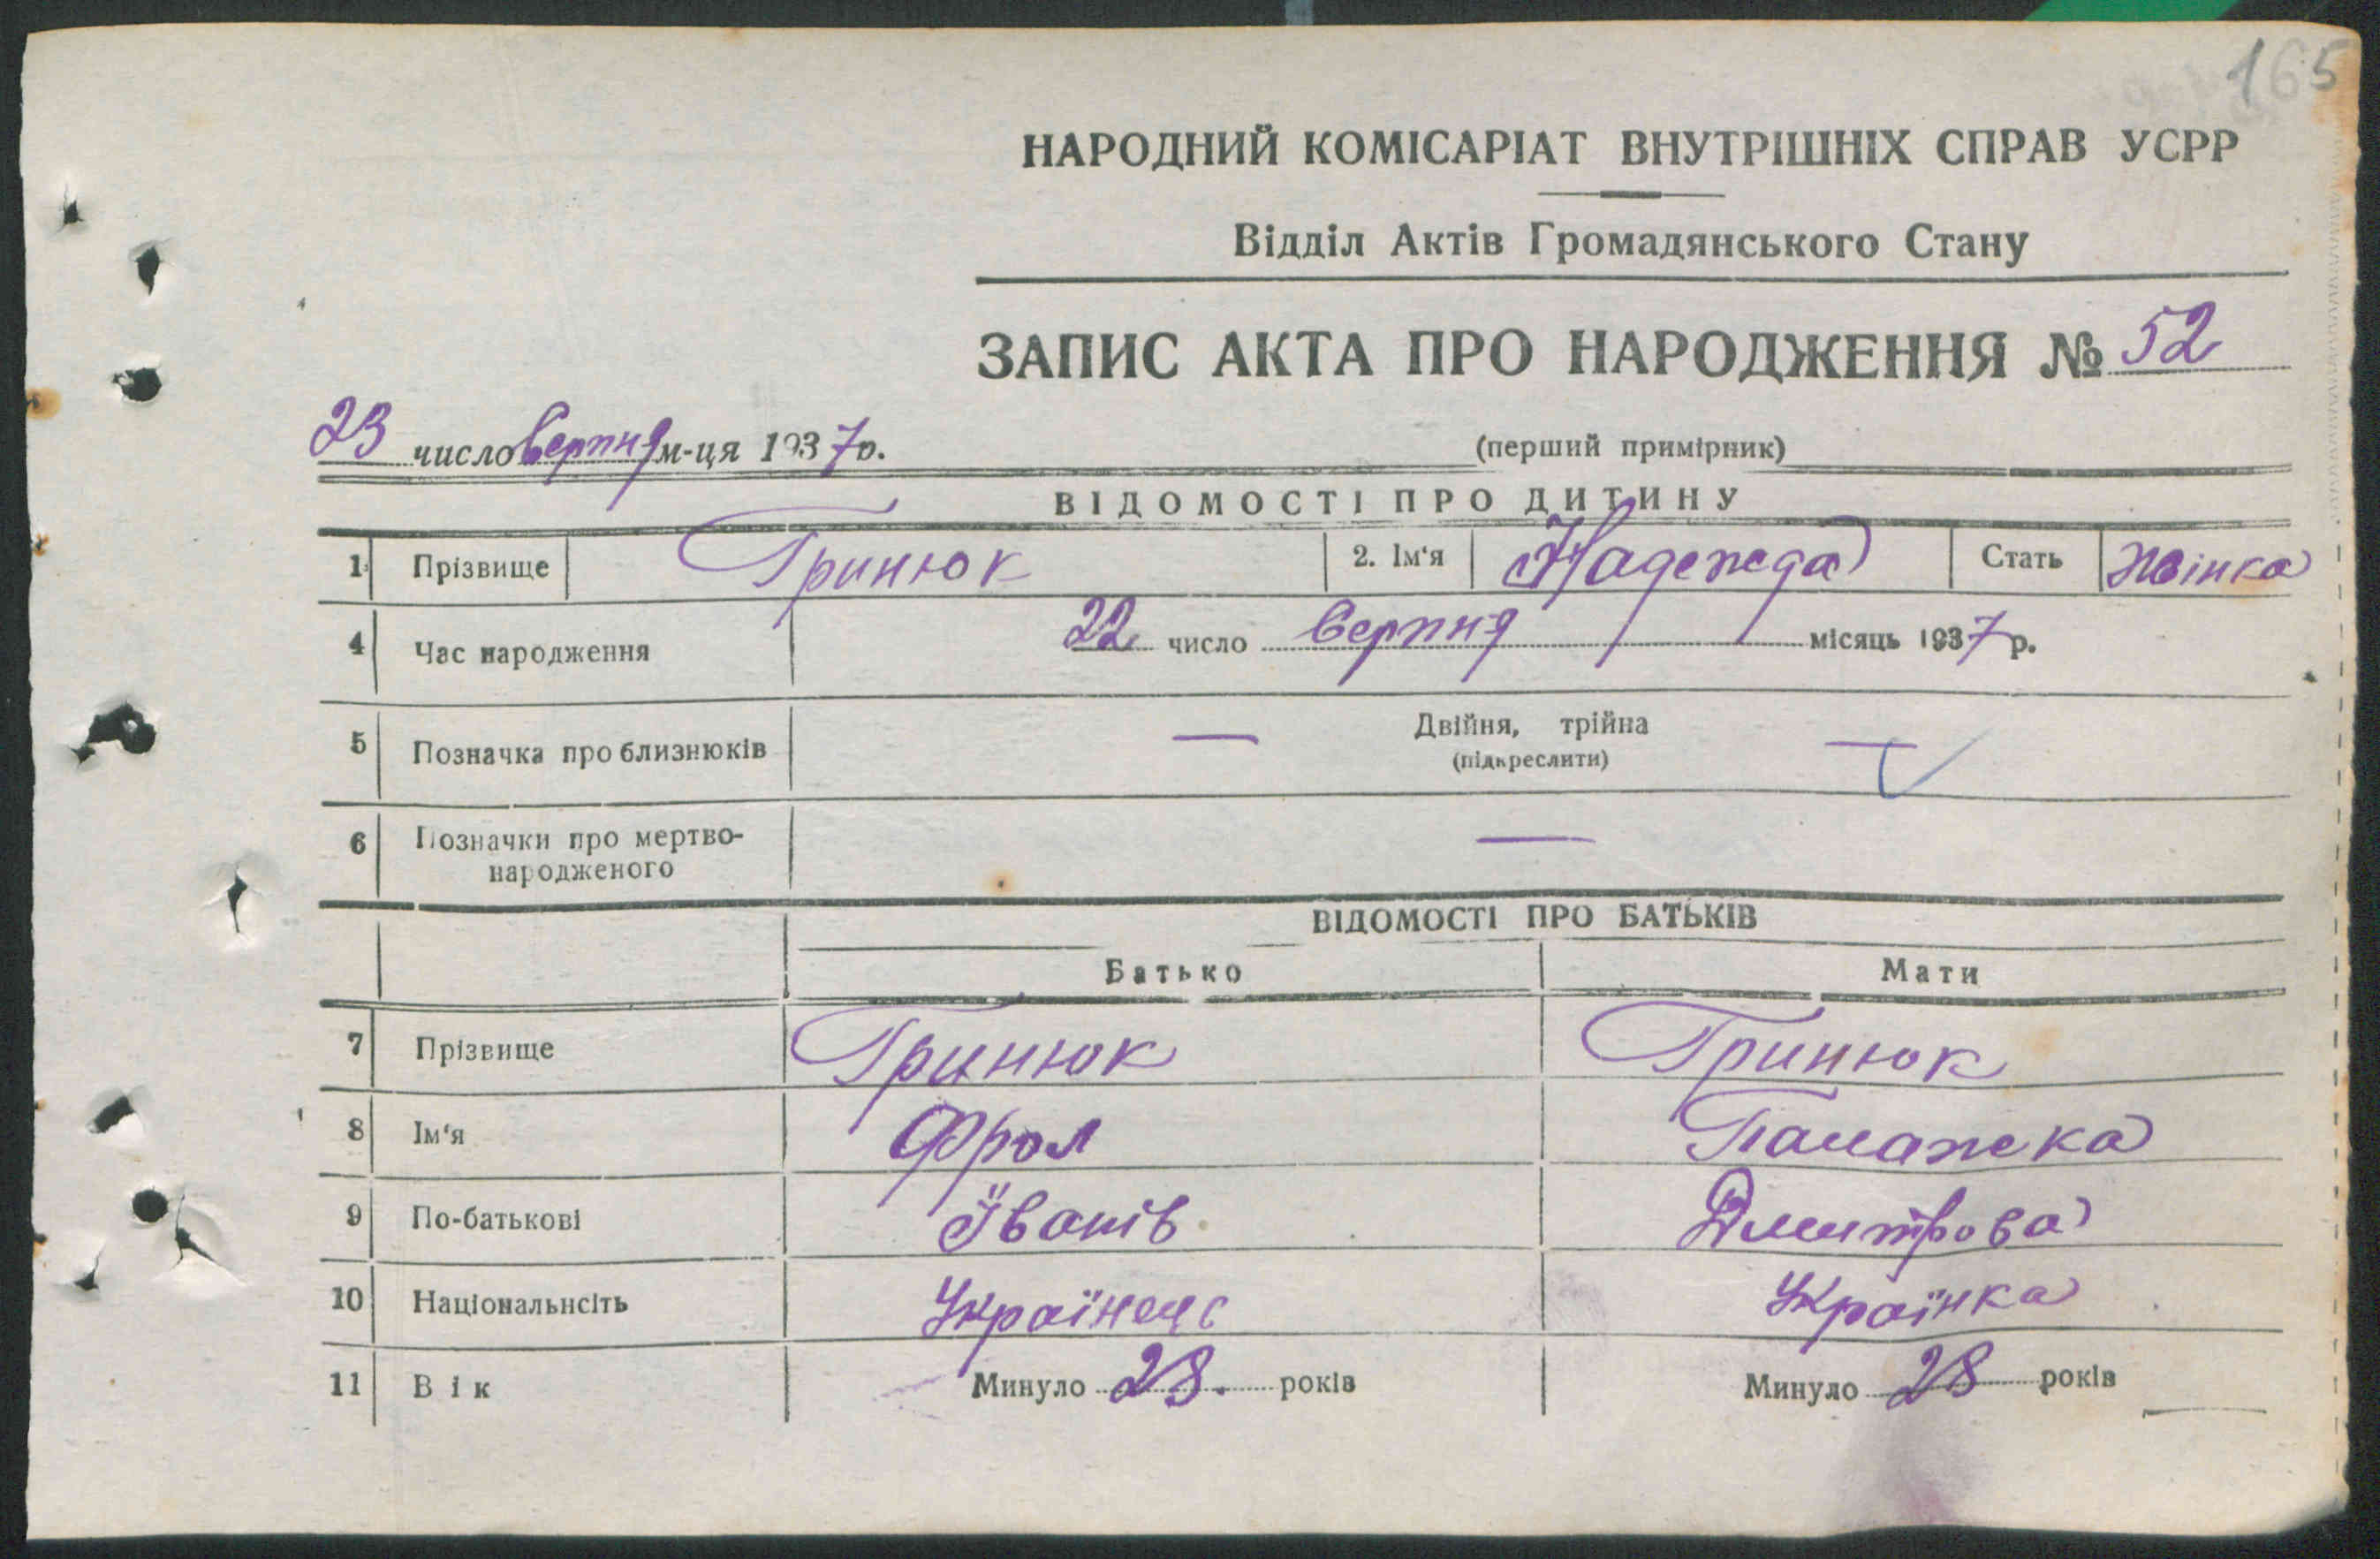 165
НАРОДНИЙ КОМІСАРІАТ ВНУТРІШНІХ СПРАВ УСРР
Відділ Актів Громадянського Стану
ЗАПИС АКТА ПРО НАРОДЖЕННЯ № 52
23 число серпня м-ця 1937р.
(перший примірник)
ВІДОМОСТІ ПРО ДИТИНУ
1 Прізвище Гринюк 2. Ім'я Надежда Стать Жінка
4 Час народження 22 число серпня місяць 1937 р.
5 Позначка про близнюків — Двійня, трійна —
(підкреслити)
6 Позначки про мертво-
народженого —
ВІДОМОСТІ ПРО БАТЬКІВ
Батько Мати
7 Прізвище Гринюк Гринюк
8 Ім'я Фрол Палажка
9 По-батькові Іванів Дмитрова
10 Національнсіть Українець Українка
11 Вік Минуло 28. років Минуло 28 років